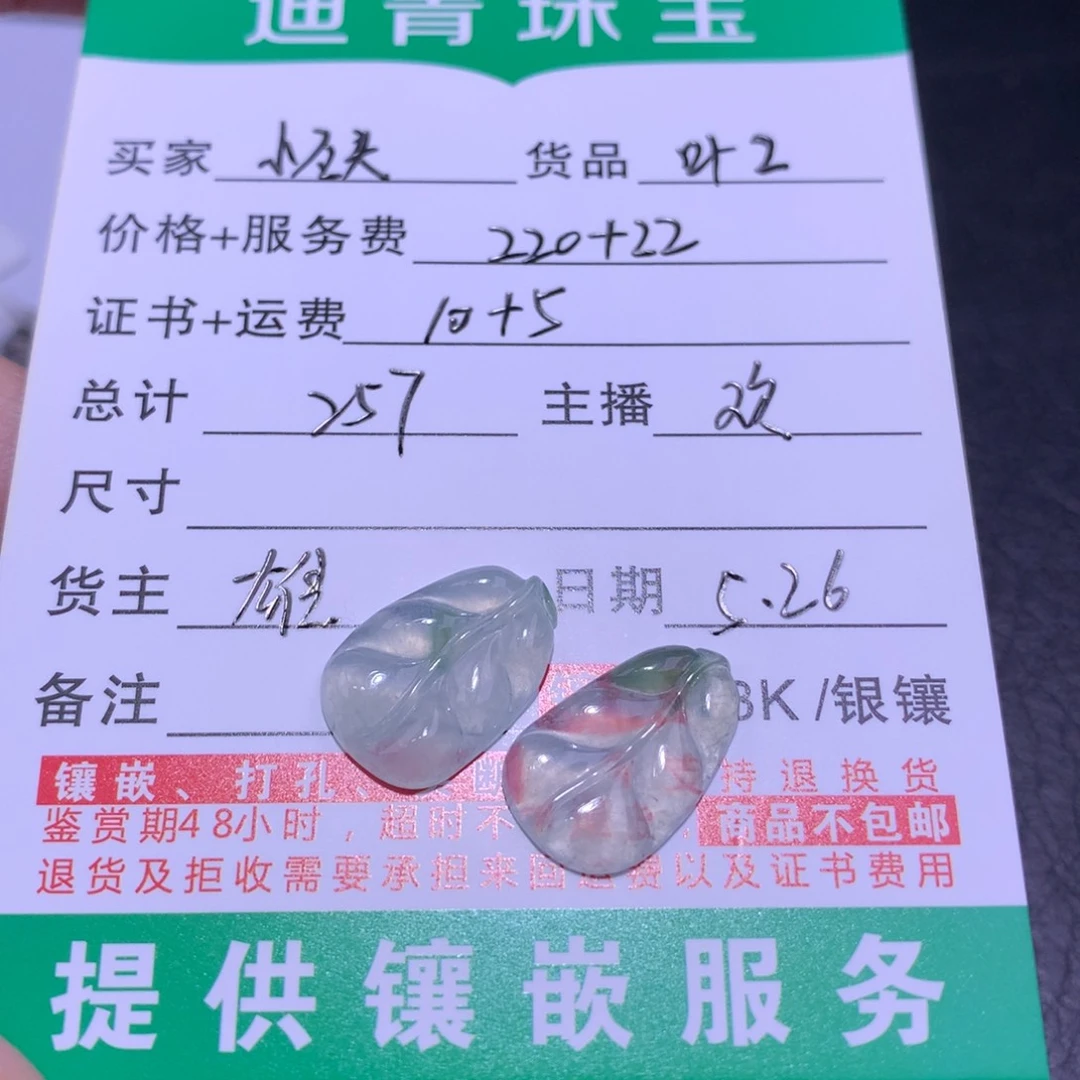 迪青珠宝
买家 货品 叶2
价格+服务费 220+22
证书+运费 10+5
总计 257 主播 欢
尺寸
货主 雄 日期 5.26
备注 8K /银镶
镶嵌、打孔、 断 支持退换货
鉴赏期48小时，超时不 ，商品不包邮
退货及拒收需要承担来回退费以及证书费用
提供镶嵌服务